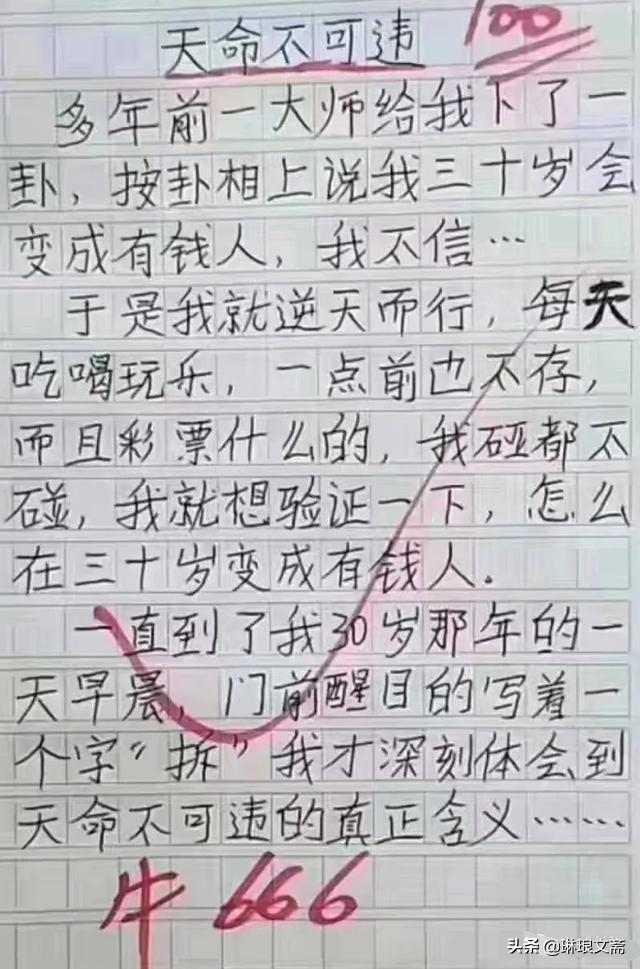 天命不可违
100
多年前一大师给我下了一
卦，按卦相上说我三十岁会
变成有钱人，我不信…
于是我就逆天而行，每天
吃喝玩乐，一点前也不存，
而且彩票什么的，我碰都不
碰，我就想验证一下，怎么
在三十岁变成有钱人.
一直到了我30岁那年的一
天早晨，门前醒目的写着一
个字“拆”我才深刻体会到
天命不可违的真正含义……
牛 666
头条 @琳琅文斋